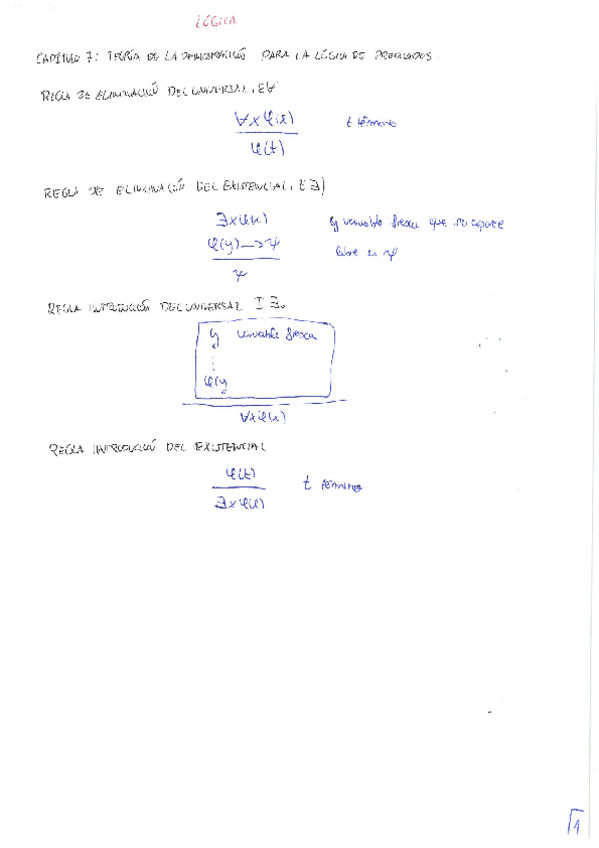 LÓGICA
CAPÍTULO 7: TEORÍA DE LA DEMOSTRACIÓN PARA LA LÓGICA DE PREDICADOS
REGLA DE ELIMINACIÓN DEL UNIVERSAL, E∀
∀xφ(x)
t término
φ(t)
REGLA DE ELIMINACIÓN DEL EXISTENCIAL, E∃)
∃xφ(x) y variable fresca que no aparece
φ(y) → ψ libre en ψ
ψ
REGLA INTRODUCCIÓN DEL UNIVERSAL I∃.
y variable fresca
⋮
φ(y
∀xφ(x)
REGLA INTRODUCCIÓN DEL EXISTENCIAL
φ(t)
t término
∃xφ(x)
1